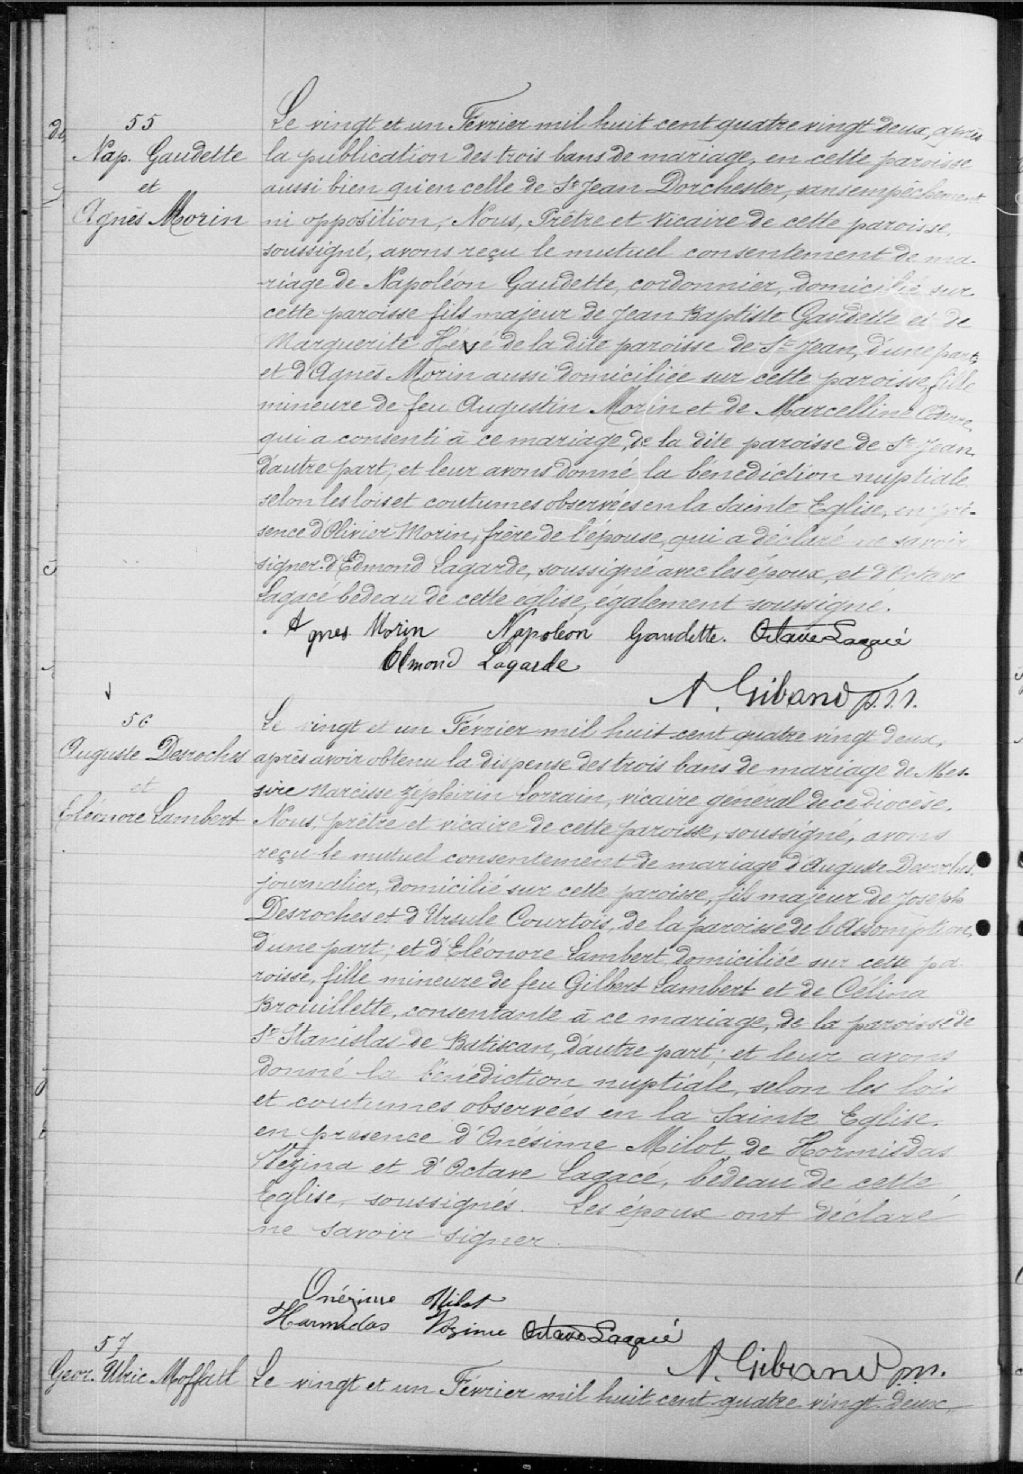 55
Nap. Gaudette
et
Agnès Morin
Le vingt et un Février mil huit cent quatre vingt deux, après
la publication des trois bans de mariage, en cette paroisse
aussi bien qu'en celle de St Jean Dorchester, sans empêchement
ni opposition, Nous, Prêtre et vicaire de cette paroisse,
soussigné, avons reçu le mutuel consentement de ma-
riage de Napoléon Gaudette, cordonnier, domicilié sur
cette paroisse fils majeur de Jean Baptiste Gaudette et de
Marguerite de la dite paroisse de St Jean, d'une part,
et d'Agnès Morin aussi domiciliée sur cette paroisse, fille
mineure de feu Augustin Morin et de Marcelline
qui a consenti à ce mariage, de la dite paroisse de St Jean,
d'autre part, et leur avons donné la bénédiction nuptiale
selon les lois et coutumes observées en la Sainte Eglise, en pré-
sence d'Olivier Morin, frère de l'épouse, qui a déclaré ne savoir
signer. d'Edmond Lagarde, soussigné avec les époux, et d'Octave
Lagacé bédeau de cette eglise, également soussigné.
Agnes Morin Napoleon Gaudette. Octave Lagacé
Edmond Lagarde
A. Giband p.s.s.
56
Auguste Desroches
et
Eléonore Lambert
Le vingt et un Février mil huit cent quatre vingt deux,
après avoir obtenu la dispense des trois bans de mariage de Mes-
sire Narcisse Zéphirin Lorrain, vicaire général de ce diocèse.
Nous, prêtre et vicaire de cette paroisse, soussigné, avons
reçu le mutuel consentement de mariage d'Auguste Desroches,
journalier, domicilié sur cette paroisse, fils majeur de Joseph
Desroches et d'Ursule Courtois, de la paroisse de l'Assomption,
d'une part; et d'Eléonore Lambert, domiciliée sur cette pa-
roisse, fille mineure de feu Gilbert Lambert et de Célina
Brouillette, consentante à ce mariage, de la paroisse de
St Stanislas de Batiscan, d'autre part; et leur avons
donné la bénédiction nuptiale, selon les lois
et coutumes observées en la Sainte Eglise.
en présence d'Onésime Milot, de Hormisdas
Vézina et d'Octave Lagacé, bédeau de cette
Eglise, soussignés. Les époux ont déclaré
ne savoir signer.
Onézime Milot
Harmidas Vézina Octave Lagacé
A. Giband p.s.s.
57
Geor. Ulric Moffatt
Le vingt et un Février mil huit cent quatre vingt deux,